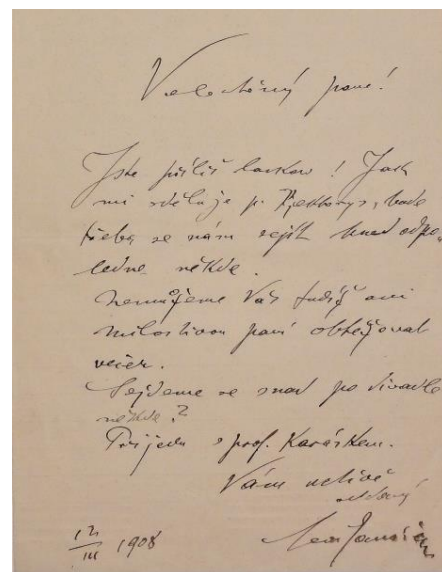 Velectěný pane!
Jste příliš laskav! Jak
mi sděluje p. Rektorys, bude
třeba se nám sejít hned odpo-
ledne někde.
Nemůžeme Vás tudíž ani
milostivou paní obtěžovat
večer.
Sejdeme se snad po divadle
někde?
Přijedu s prof. Karáskem.
Vám uctivě
oddaný
Leoš Janáček
12/III 1908